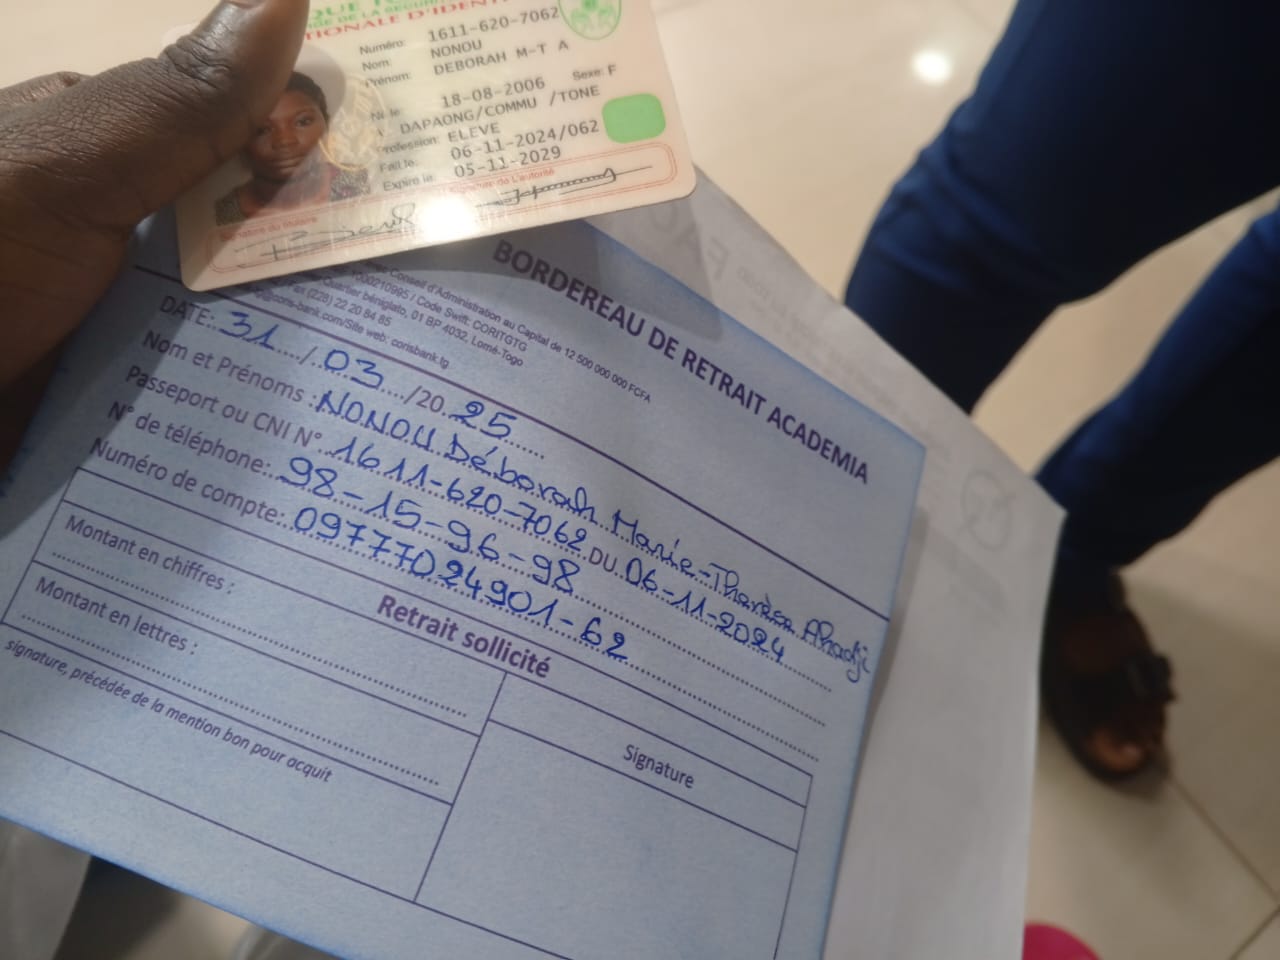 TIONALE D'IDENT
Numéro: 1611-620-7062
Nom: NONOU
Prénom: DEBORAH M-T A
Né le: 18-08-2006 Sexe: F
A DAPAONG/COMMU /TONE
Profession: ELEVE
Fait le: 06-11-2024/062
Expire le: 05-11-2029
Signature du titulaire
Signature de L'autorité
BORDEREAU DE RETRAIT ACADEMIA
Conseil d'Administration au Capital de 12 500 000 000 FCFA
1000210995 / Code Swift: CORITGTG
Quartier béniglato, 01 BP 4032, Lomé-Togo
(228) 22 20 84 85
bank.com/Site web: corisbank.tg
DATE: 31/03/2025
Nom et Prénoms : NONOU Déborah Marie-Thérèse Ahadji
Passeport ou CNI N° 1611-620-7062 DU 06-11-2024
N° de téléphone: 98-15-96-98
Numéro de compte: 09777024901-62
Retrait sollicité
Montant en chiffres :
Montant en lettres :
Signature
signature, précédée de la mention bon pour acquit